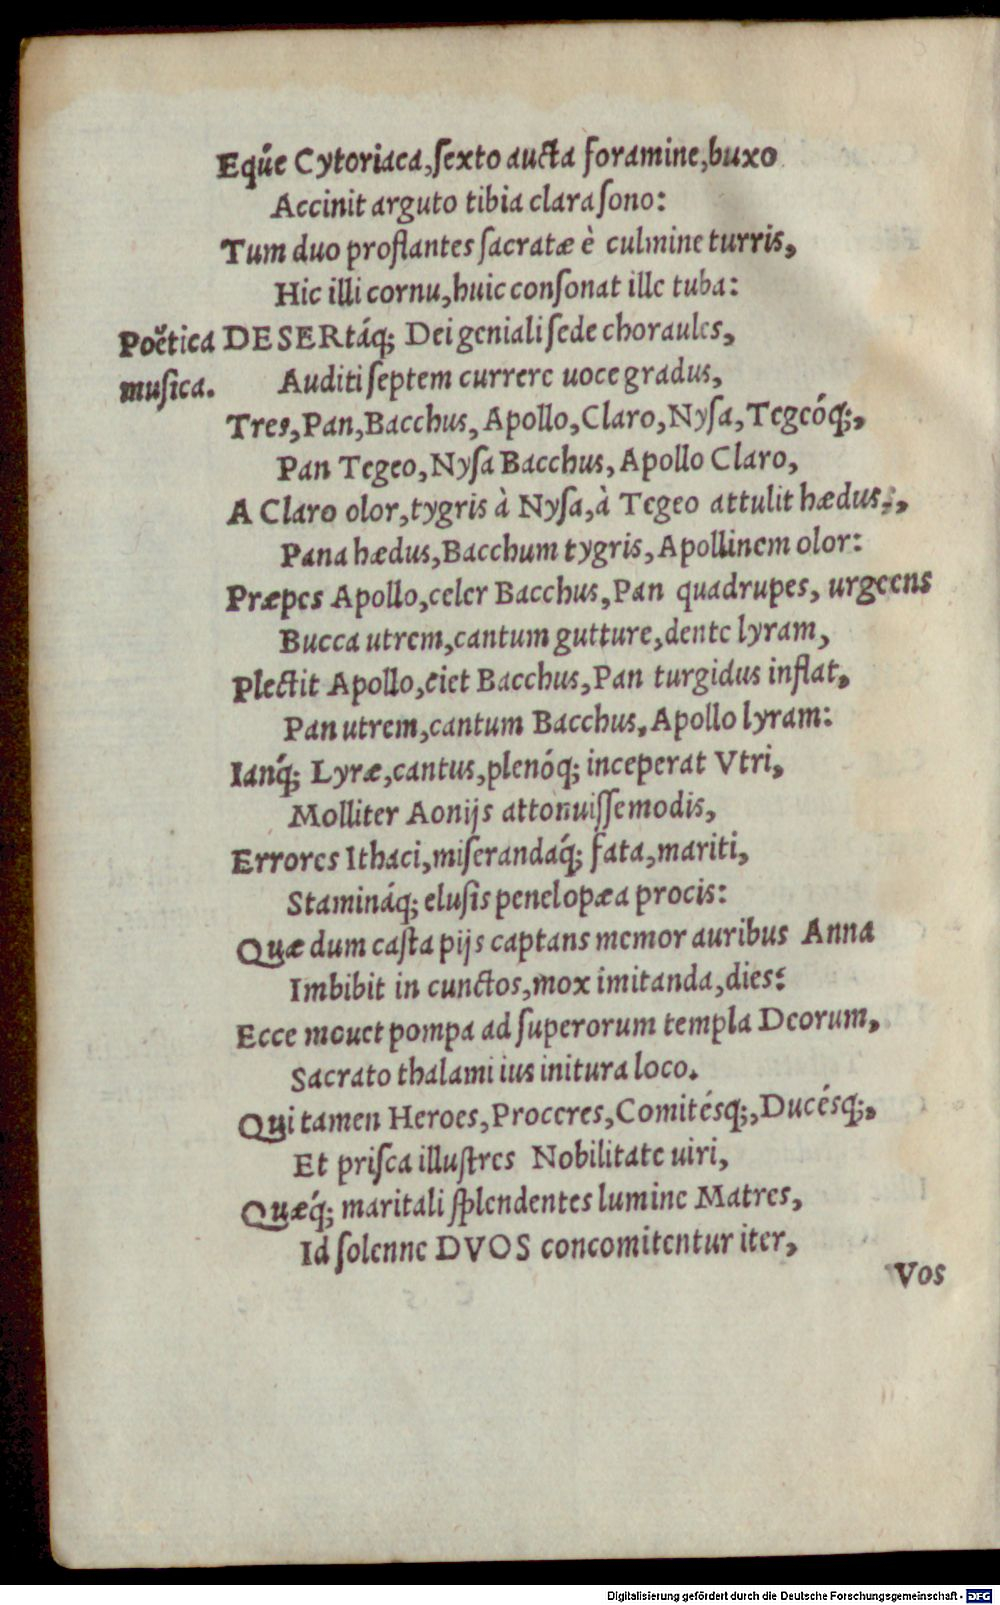 Eq́ue Cytoriaca, ſexto aucta foramine, buxo
Accinit arguto tibia clara ſono:
Tum duo proſtantes ſacratæ è culmine turris,
Hic illi cornu, huic conſonat ille tuba:
Poëtica musica.
DESERtáq; Dei geniali ſede choraules,
Auditi ſeptem currere uoce gradus,
Tres, Pan, Bacchus, Apollo, Claro, Nyſa, Tegeóq;,
Pan Tegeo, Nyſa Bacchus, Apollo Claro,
A Claro olor, tygris à Nyſa, à Tegeo attulit hædus;,
Pana hædus, Bacchum tygris, Apollinem olor:
Præpes Apollo, celer Bacchus, Pan quadrupes, urgeens
Bucca utrem, cantum gutture, dente lyram,
Plectit Apollo, ciet Bacchus, Pan turgidus inflat,
Pan utrem, cantum Bacchus, Apollo lyram:
Ianq́; Lyræ, cantus, plenóq; inceperat Vtri,
Molliter Aonijs attonuiſſe modis,
Errores Ithaci, miſerandaq́; fata, mariti,
Stamináq; eluſis penelopæa procis:
Quæ dum caſta pijs captans memor auribus Anna
Imbibit in cunctos, mox imitanda, dies:
Ecce mouet pompa ad ſuperorum templa Deorum,
Sacrato thalami ius initura loco.
Qui tamen Heroes, Proceres, Comitésq;, Ducésq;,
Et priſca illuſtres Nobilitate uiri,
Quæq́; maritali ſplendentes lumine Matres,
Id ſolenne DVOS concomitentur iter,
Vos
Digitalisierung gefördert durch die Deutsche Forschungsgemeinschaft - DFG